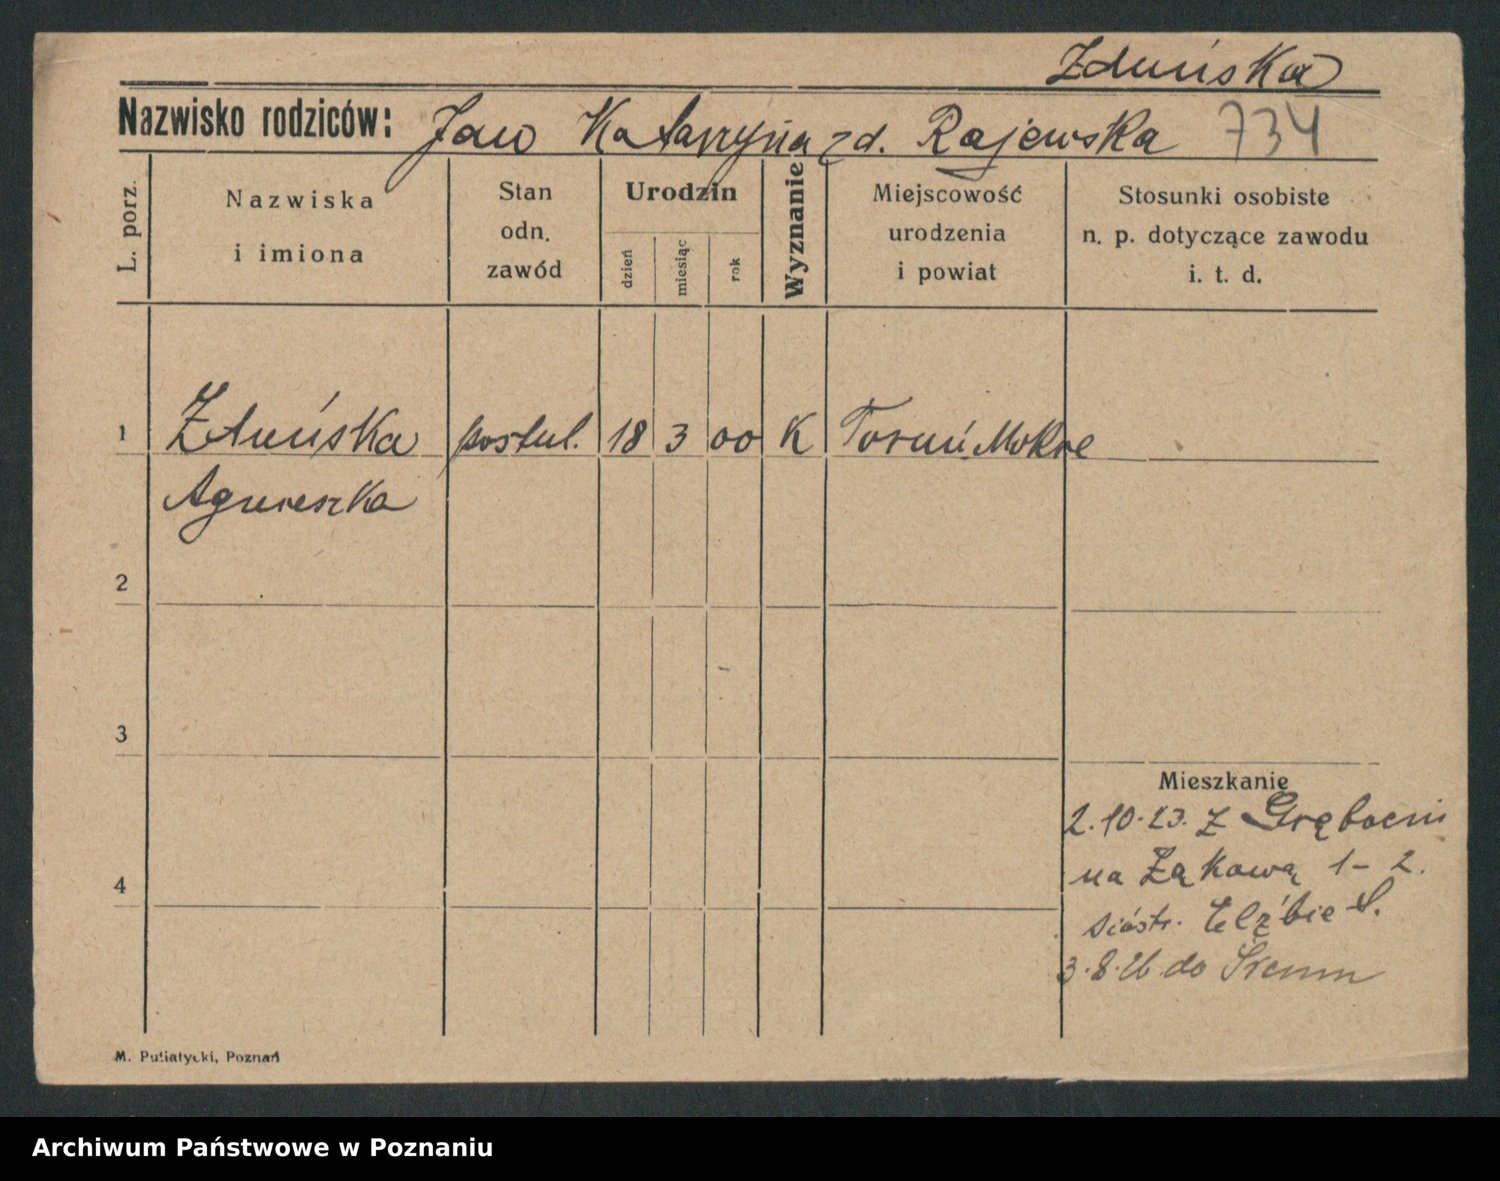 Zduńska
Nazwisko rodziców: Jan Katarzyna zd. Rajewska 734
L. porz.
Nazwiska
i imiona
Stan
odn.
zawód
Urodzin
dzień
miesiąc
rok
Wyznanie
Miejscowość
urodzenia
i powiat
Stosunki osobiste
n. p. dotyczące zawodu
i. t. d.
1 Zduńska postul. 18 3 00 K Toruń Mokre
Agnieszka
2
3
4
Mieszkanie
2.10.23. z Grębocin
na Łąkową 1-2.
siostr. Elżbiet.
3.8.26 do Śremu
M. Putiatycki, Poznań
Archiwum Państwowe w Poznaniu